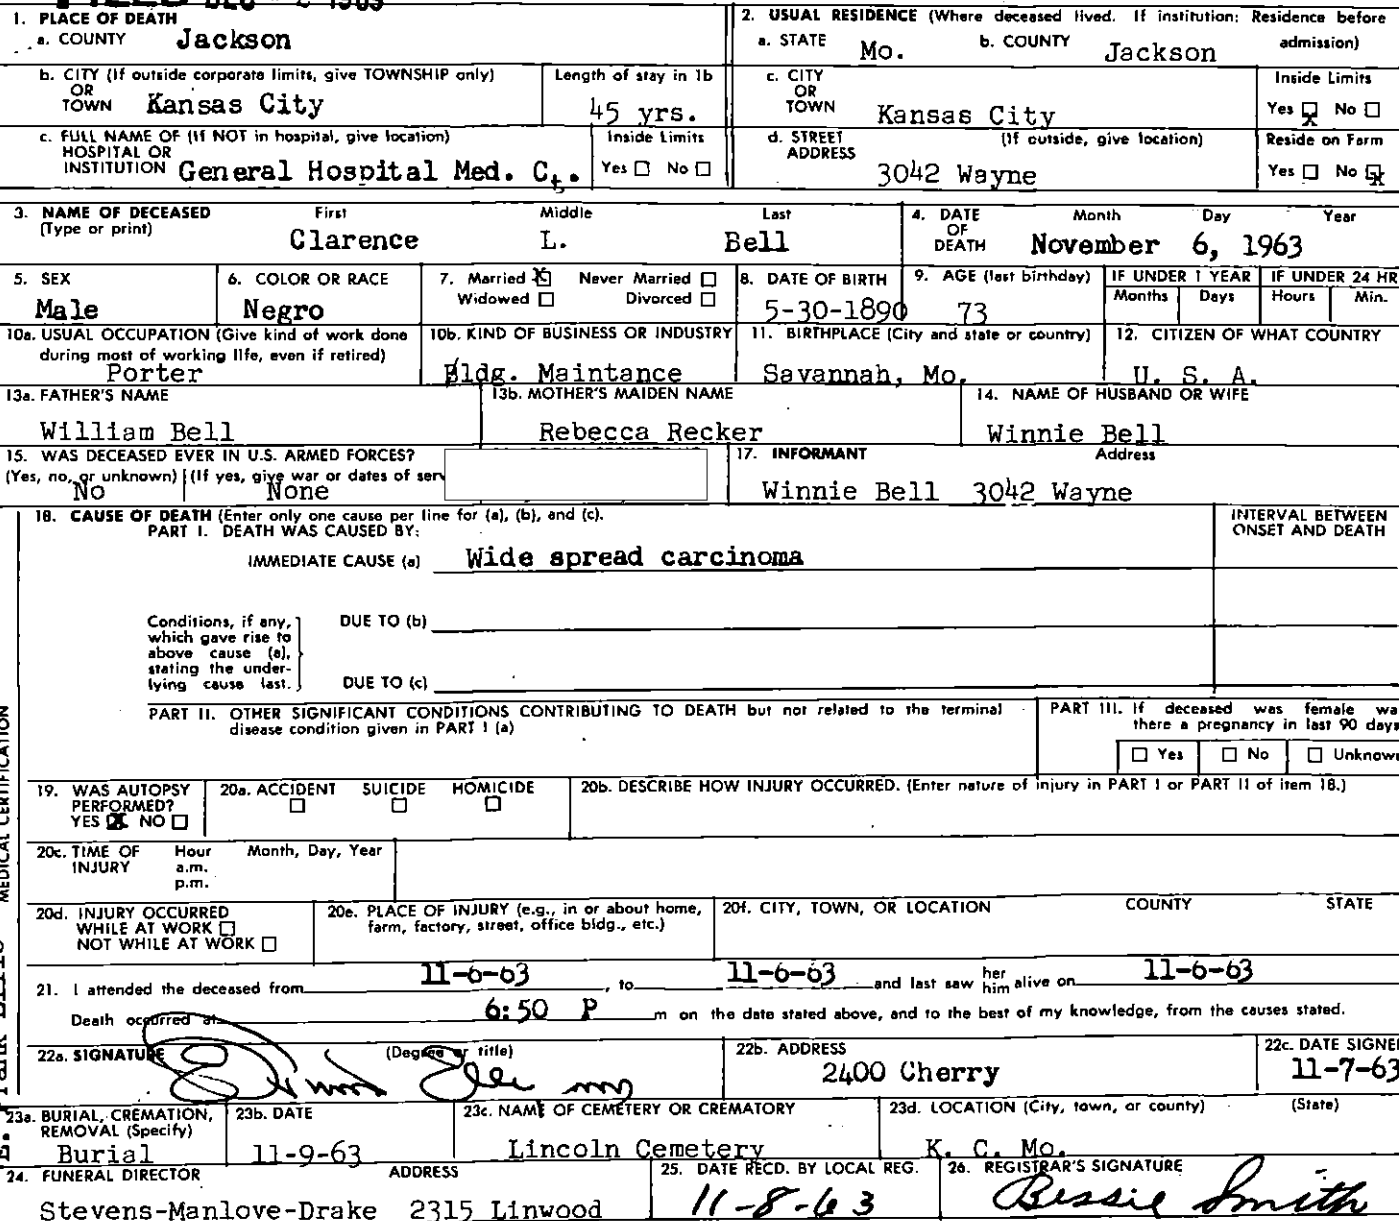 DEC 2 1963
1. PLACE OF DEATH
a. COUNTY Jackson
2. USUAL RESIDENCE (Where deceased lived. If institution: Residence before admission)
a. STATE Mo. b. COUNTY Jackson
b. CITY (If outside corporate limits, give TOWNSHIP only) OR TOWN Kansas City
Length of stay in 1b 45 yrs.
c. CITY OR TOWN Kansas City
Inside Limits Yes ☒ No ☐
c. FULL NAME OF (If NOT in hospital, give location) HOSPITAL OR INSTITUTION General Hospital Med. Ct.
Inside Limits Yes ☐ No ☐
d. STREET ADDRESS (If outside, give location) 3042 Wayne
Reside on Farm Yes ☐ No ☒
3. NAME OF DECEASED (Type or print) First Middle Last
Clarence L. Bell
4. DATE OF DEATH Month Day Year
November 6, 1963
5. SEX Male
6. COLOR OR RACE Negro
7. Married ☒ Never Married ☐
Widowed ☐ Divorced ☐
8. DATE OF BIRTH 5-30-1890
9. AGE (last birthday) 73
IF UNDER 1 YEAR Months Days
IF UNDER 24 HR Hours Min.
10a. USUAL OCCUPATION (Give kind of work done during most of working life, even if retired)
Porter
10b. KIND OF BUSINESS OR INDUSTRY
Bldg. Maintance
11. BIRTHPLACE (City and state or country)
Savannah, Mo.
12. CITIZEN OF WHAT COUNTRY
U. S. A.
13a. FATHER'S NAME
William Bell
13b. MOTHER'S MAIDEN NAME
Rebecca Recker
14. NAME OF HUSBAND OR WIFE
Winnie Bell
15. WAS DECEASED EVER IN U.S. ARMED FORCES?
(Yes, no, or unknown) (If yes, give war or dates of serv
No None
17. INFORMANT Address
Winnie Bell 3042 Wayne
MEDICAL CERTIFICATION
18. CAUSE OF DEATH (Enter only one cause per line for (a), (b), and (c).
PART I. DEATH WAS CAUSED BY:
INTERVAL BETWEEN ONSET AND DEATH
IMMEDIATE CAUSE (a) Wide spread carcinoma
Conditions, if any, which gave rise to above cause (a), stating the under-lying cause last.
DUE TO (b)
DUE TO (c)
PART II. OTHER SIGNIFICANT CONDITIONS CONTRIBUTING TO DEATH but not related to the terminal disease condition given in PART I (a)
PART III. If deceased was female wa there a pregnancy in last 90 days
☐ Yes ☐ No ☐ Unknown
19. WAS AUTOPSY PERFORMED?
YES ☒ NO ☐
20a. ACCIDENT ☐ SUICIDE ☐ HOMICIDE ☐
20b. DESCRIBE HOW INJURY OCCURRED. (Enter nature of injury in PART I or PART II of item 18.)
20c. TIME OF INJURY Hour a.m. p.m. Month, Day, Year
20d. INJURY OCCURRED
WHILE AT WORK ☐
NOT WHILE AT WORK ☐
20e. PLACE OF INJURY (e.g., in or about home, farm, factory, street, office bldg., etc.)
20f. CITY, TOWN, OR LOCATION COUNTY STATE
21. I attended the deceased from 11-6-63, to 11-6-63 and last saw her him alive on 11-6-63
Death occurred at 6:50 P m on the date stated above, and to the best of my knowledge, from the causes stated.
22a. SIGNATURE (Degree or title)
22b. ADDRESS
2400 Cherry
22c. DATE SIGNE
11-7-63
23a. BURIAL, CREMATION, REMOVAL (Specify)
Burial
23b. DATE
11-9-63
23c. NAME OF CEMETERY OR CREMATORY
Lincoln Cemetery
23d. LOCATION (City, town, or county) (State)
K. C. Mo.
24. FUNERAL DIRECTOR ADDRESS
Stevens-Manlove-Drake 2315 Linwood
25. DATE RECD. BY LOCAL REG.
11-8-63
26. REGISTRAR'S SIGNATURE
Bessie Smith